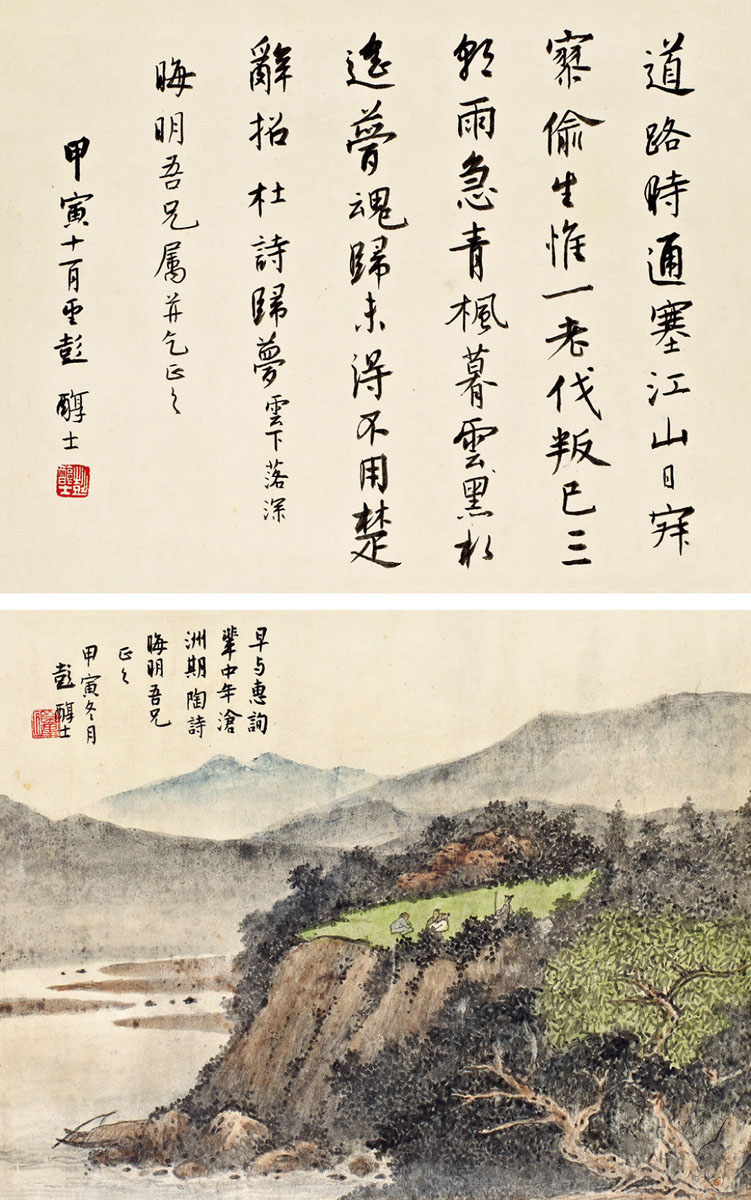 道路時通塞江山日寂
寥偷生惟一老伐叛已三
朝雨急青楓暮雲黑水
遙夢魂歸未得不用楚
辭招杜詩歸夢雲下落深
晦明吾兄屬并乞正之
甲寅十一月彭醇士
早与惠詢
輩中年滄
洲期陶詩
晦明吾兄
正之
甲寅冬月
彭醇士